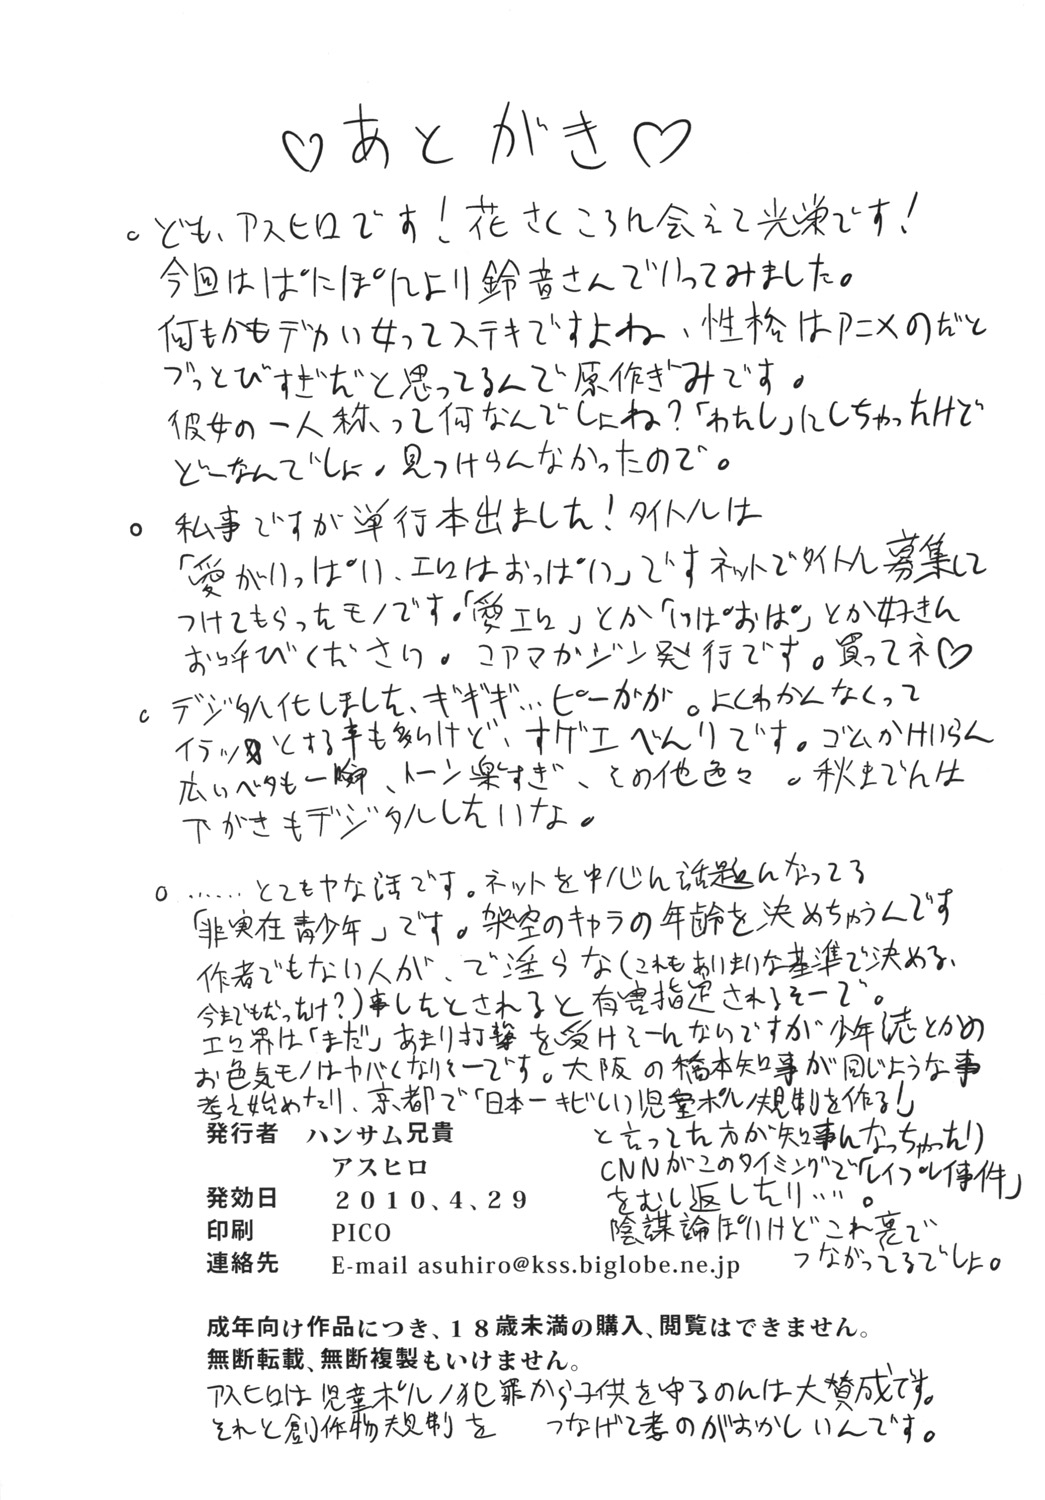 ♡あとがき♡
○ ども、アスヒロです！花さくころに会えて光栄です！
今回はぱにぽにより鈴音さんでいってみました。
何もかもデカい女ってステキですよね、性格はアニメのだと
ブっとびすぎだと思ってるんで原作ぎみです。
彼女の一人称って何なんでしょね？「わたし」にしちゃったけど
どーなんでしょ。見つけらんなかったので。
○ 私事ですが単行本出ました！タイトルは
「愛がいっぱい、エロはおっぱい」ですネットでタイトル募集して
つけてもらったモノです。「愛エロ」とか「いぱおぱ」とか好きに
お呼びください。コアマガジン発行です。買ってネ♡
○ デジタル化しました、ギギギ…ピーガガ。よくわかんなくって
イラッとする事も多いけど、すゲエべんりです。ゴムかけいらん
広いベタも一瞬、トーン楽すぎ、その他色々。秋までには
下がきもデジタルしたいな。
○ ……とてもヤな話です。ネットを中心に話題になってる
「非実在青少年」です。架空のキャラの年齢を決めちゃうんです
作者でもない人が、で淫らな(これもあいまいな基準で決める、
今までもだっけ？)事したとされると有害指定されるそーで。
エロ界は「まだ」あまり打撃を受けそーにないですが少年誌とかの
お色気モノはヤバくなりそーです。大阪の橋本知事が同じような事
考え始めたり、京都で「日本一キビしい児童ポルノ規制を作る！」
と言ってた方が知事になっちゃったり
CNNがこのタイミングで「レイプレイ事件」
をむし返したり…。
陰謀論ぽいけどこれ裏で
つながってるでしょ。
発行者 ハンサム兄貴
アスヒロ
発効日 ２０１０、４、２９
印刷 PICO
連絡先 E-mail asuhiro@kss.biglobe.ne.jp
成年向け作品につき、１８歳未満の購入、閲覧はできません。
無断転載、無断複製もいけません。
アスヒロは児童ポルノ犯罪から子供を守るのには大賛成です。
それと創作物規制を つなげて考のがおかしいんです。